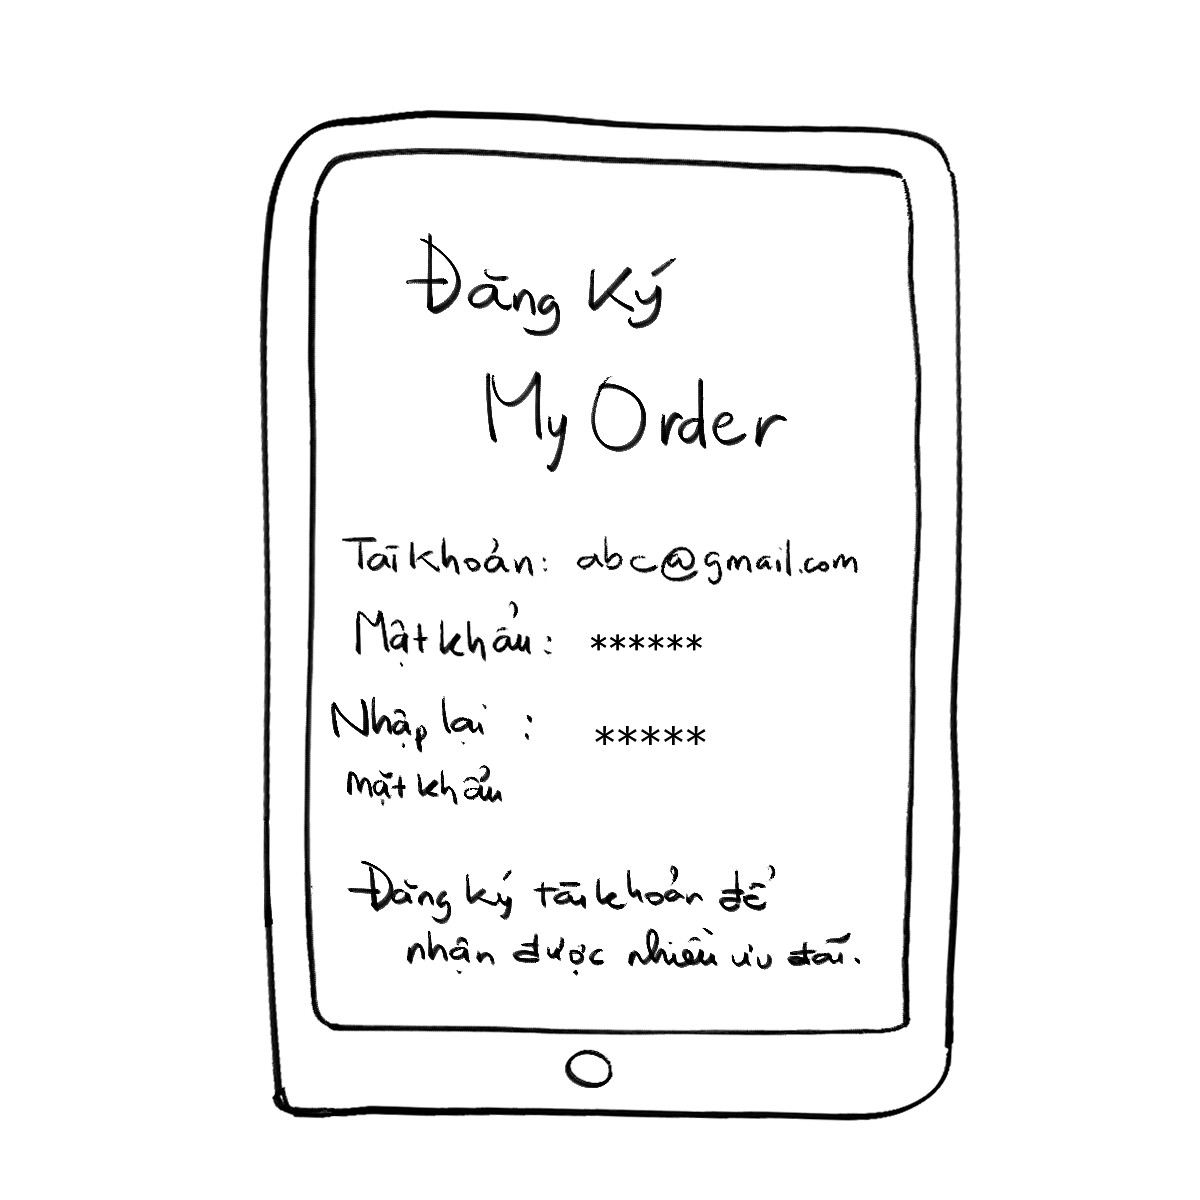 Đăng Ký
My Order
Tài khoản: abc@gmail.com
Mật khẩu: ******
Nhập lại : *****
mật khẩu
Đăng ký tài khoản để
nhận được nhiều ưu đãi.